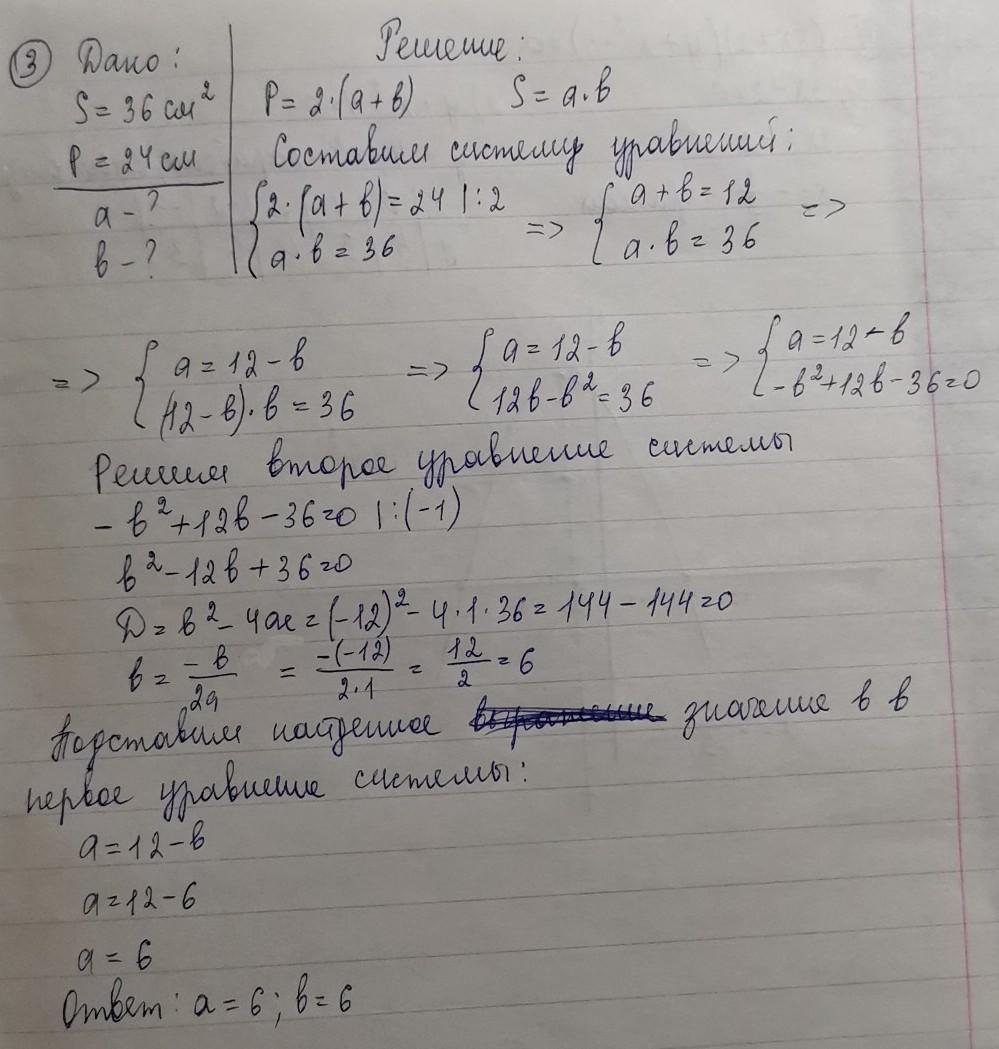 ③ Дано:
S = 36 см²
P = 24 см
a - ?
b - ?
Решение:
P = 2·(a + b) S = a·b
Составим систему уравнений:
{ 2·(a + b) = 24 |:2 => { a + b = 12 =>
{ a·b = 36 { a·b = 36
=> { a = 12 - b => { a = 12 - b => { a = 12 - b
{ (12 - b)·b = 36 { 12b - b² = 36 { -b² + 12b - 36 = 0
Решим второе уравнение системы
- b² + 12b - 36 = 0 |:(-1)
b² - 12b + 36 = 0
D = b² - 4ac = (-12)² - 4·1·36 = 144 - 144 = 0
b = -b/2a = -(-12)/2·1 = 12/2 = 6
Подставим найденное значение b в
первое уравнение системы:
a = 12 - b
a = 12 - 6
a = 6
Ответ: a = 6; b = 6